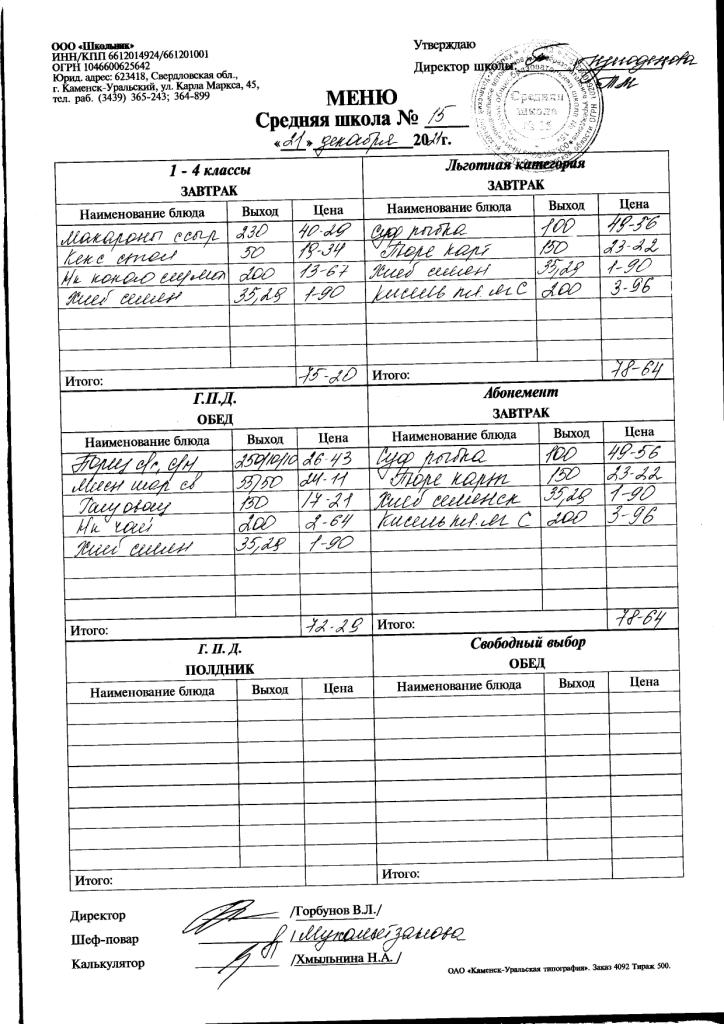 ООО «Школьник»
ИНН/КПП 6612014924/661201001
ОГРН 1046600625642
Юрид. адрес: 623418, Свердловская обл.,
г. Каменск-Уральский, ул. Карла Маркса, 45,
тел. раб. (3439) 365-243; 364-899
Утверждаю
Директор школы:
Средняя школа № 15
МЕНЮ
Средняя школа № 15
«21» декабря 2021г.
1 - 4 классы
ЗАВТРАК
Наименование блюда Выход Цена
Макароны с сыр 230 40-29
Кекс стол 50 19-34
200 13-67
Хлеб семен 35,29 1-90
Итого: 75-20
Льготная категория
ЗАВТРАК
Наименование блюда Выход Цена
Суф рыбка 100 49-56
Пюре карт 150 23-22
Хлеб семен 35,29 1-90
Кисель пл. яг С 200 3-96
Итого: 78-64
Г.П.Д.
ОБЕД
Наименование блюда Выход Цена
250/10/10 26-43
55/50 24-11
150 17-21
Нк чай 200 2-64
Хлеб семен 35,29 1-90
Итого: 72-29
Абонемент
ЗАВТРАК
Наименование блюда Выход Цена
Суф рыбка 100 49-56
Пюре карт 150 23-22
Хлеб семенск 35,29 1-90
Кисель пл. яг С 200 3-96
Итого: 78-64
Г. П. Д.
ПОЛДНИК
Наименование блюда Выход Цена
Итого:
Свободный выбор
ОБЕД
Наименование блюда Выход Цена
Итого:
Директор /Горбунов В.Л./
Шеф-повар
Калькулятор /Хмыльнина Н.А. /
ОАО «Каменск-Уральская типография». Заказ 4092 Тираж 500.